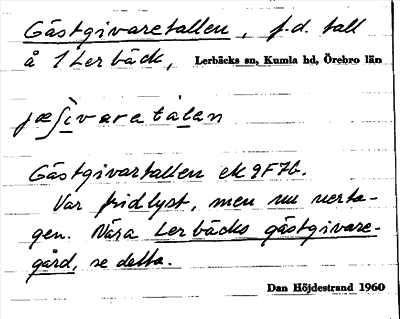 Gästgivaretallen, f.d. tall
å 1 Lerbäck, Lerbäcks sn, Kumla hd, Örebro län
jæʃivaretálan
Gästgivartallen ek 9F7b.
Var fridlyst, men nu nerta-
gen. Nära Lerbäcks gästgivare-
gård, se detta.
Dan Höjdestrand 1960